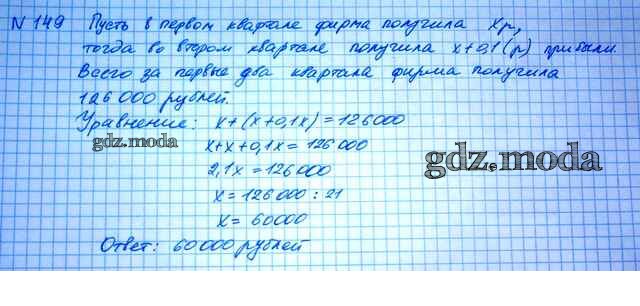 N 149 Пусть в первом квартале фирма получила x р,
тогда во втором квартале получила x+0,1(р) прибыли.
Всего за первые два квартала фирма получила
126 000 рублей.
Уравнение: x+(x+0,1x)=126000
gdz.moda
x+x+0,1x=126 000
gdz.moda
2,1x=126000
x=126000 : 21
x= 60000
Ответ: 60000 рублей